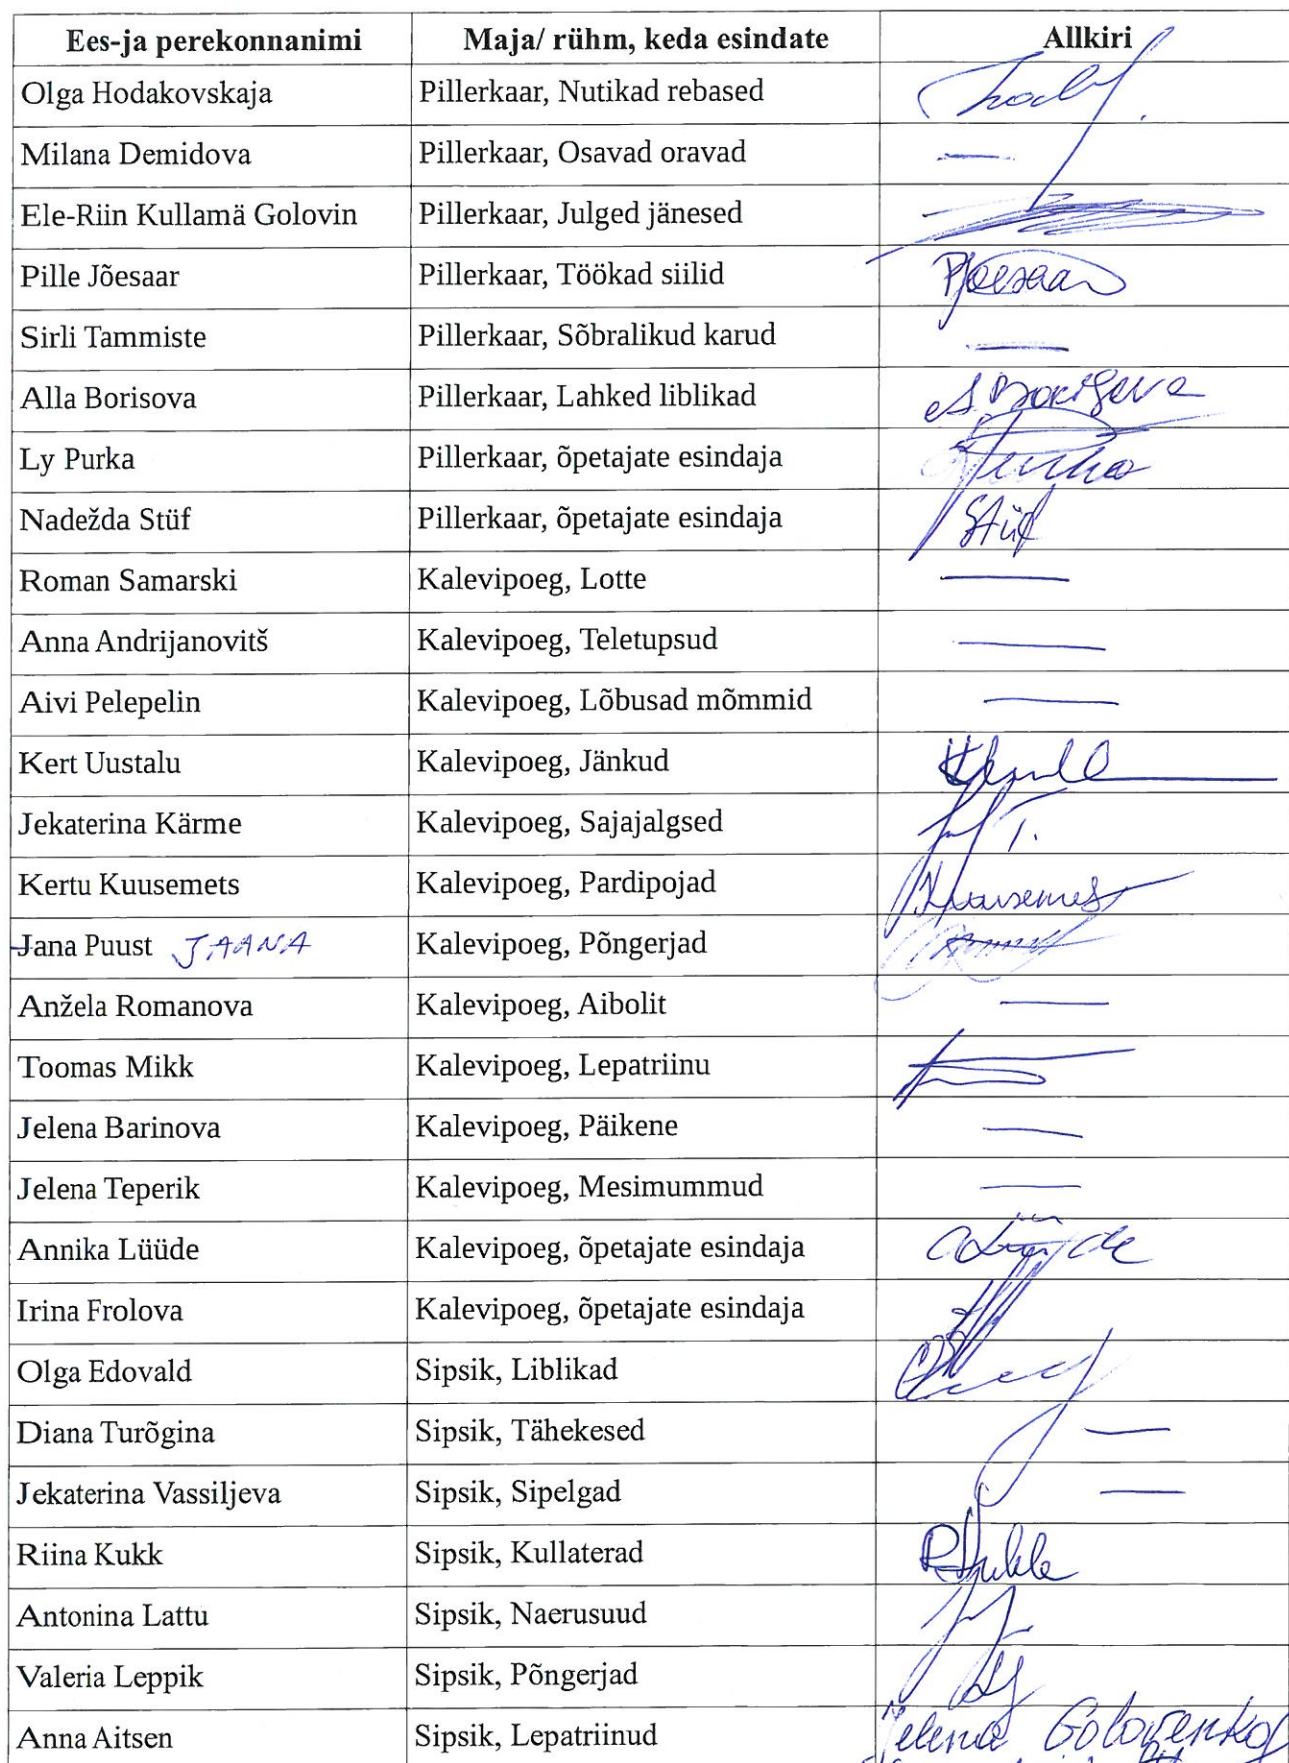 Ees-ja perekonnanimi Maja/ rühm, keda esindate Allkiri
Olga Hodakovskaja Pillerkaar, Nutikad rebased
Milana Demidova Pillerkaar, Osavad oravad —
Ele-Riin Kullamä Golovin Pillerkaar, Julged jänesed
Pille Jõesaar Pillerkaar, Töökad siilid PJoesaar
Sirli Tammiste Pillerkaar, Sõbralikud karud —
Alla Borisova Pillerkaar, Lahked liblikad A. Borisova
Ly Purka Pillerkaar, õpetajate esindaja Purka
Nadežda Stüf Pillerkaar, õpetajate esindaja Stüf
Roman Samarski Kalevipoeg, Lotte —
Anna Andrijanovitš Kalevipoeg, Teletupsud —
Aivi Pelepelin Kalevipoeg, Lõbusad mõmmid —
Kert Uustalu Kalevipoeg, Jänkud
Jekaterina Kärme Kalevipoeg, Sajajalgsed
Kertu Kuusemets Kalevipoeg, Pardipojad
Jana Puust JAANA Kalevipoeg, Põngerjad
Anžela Romanova Kalevipoeg, Aibolit —
Toomas Mikk Kalevipoeg, Lepatriinu
Jelena Barinova Kalevipoeg, Päikene —
Jelena Teperik Kalevipoeg, Mesimummud —
Annika Lüüde Kalevipoeg, õpetajate esindaja ALüüde
Irina Frolova Kalevipoeg, õpetajate esindaja
Olga Edovald Sipsik, Liblikad
Diana Turõgina Sipsik, Tähekesed —
Jekaterina Vassiljeva Sipsik, Sipelgad —
Riina Kukk Sipsik, Kullaterad RKukk
Antonina Lattu Sipsik, Naerusuud
Valeria Leppik Sipsik, Põngerjad
Anna Aitsen Sipsik, Lepatriinud Jelena Golovenko